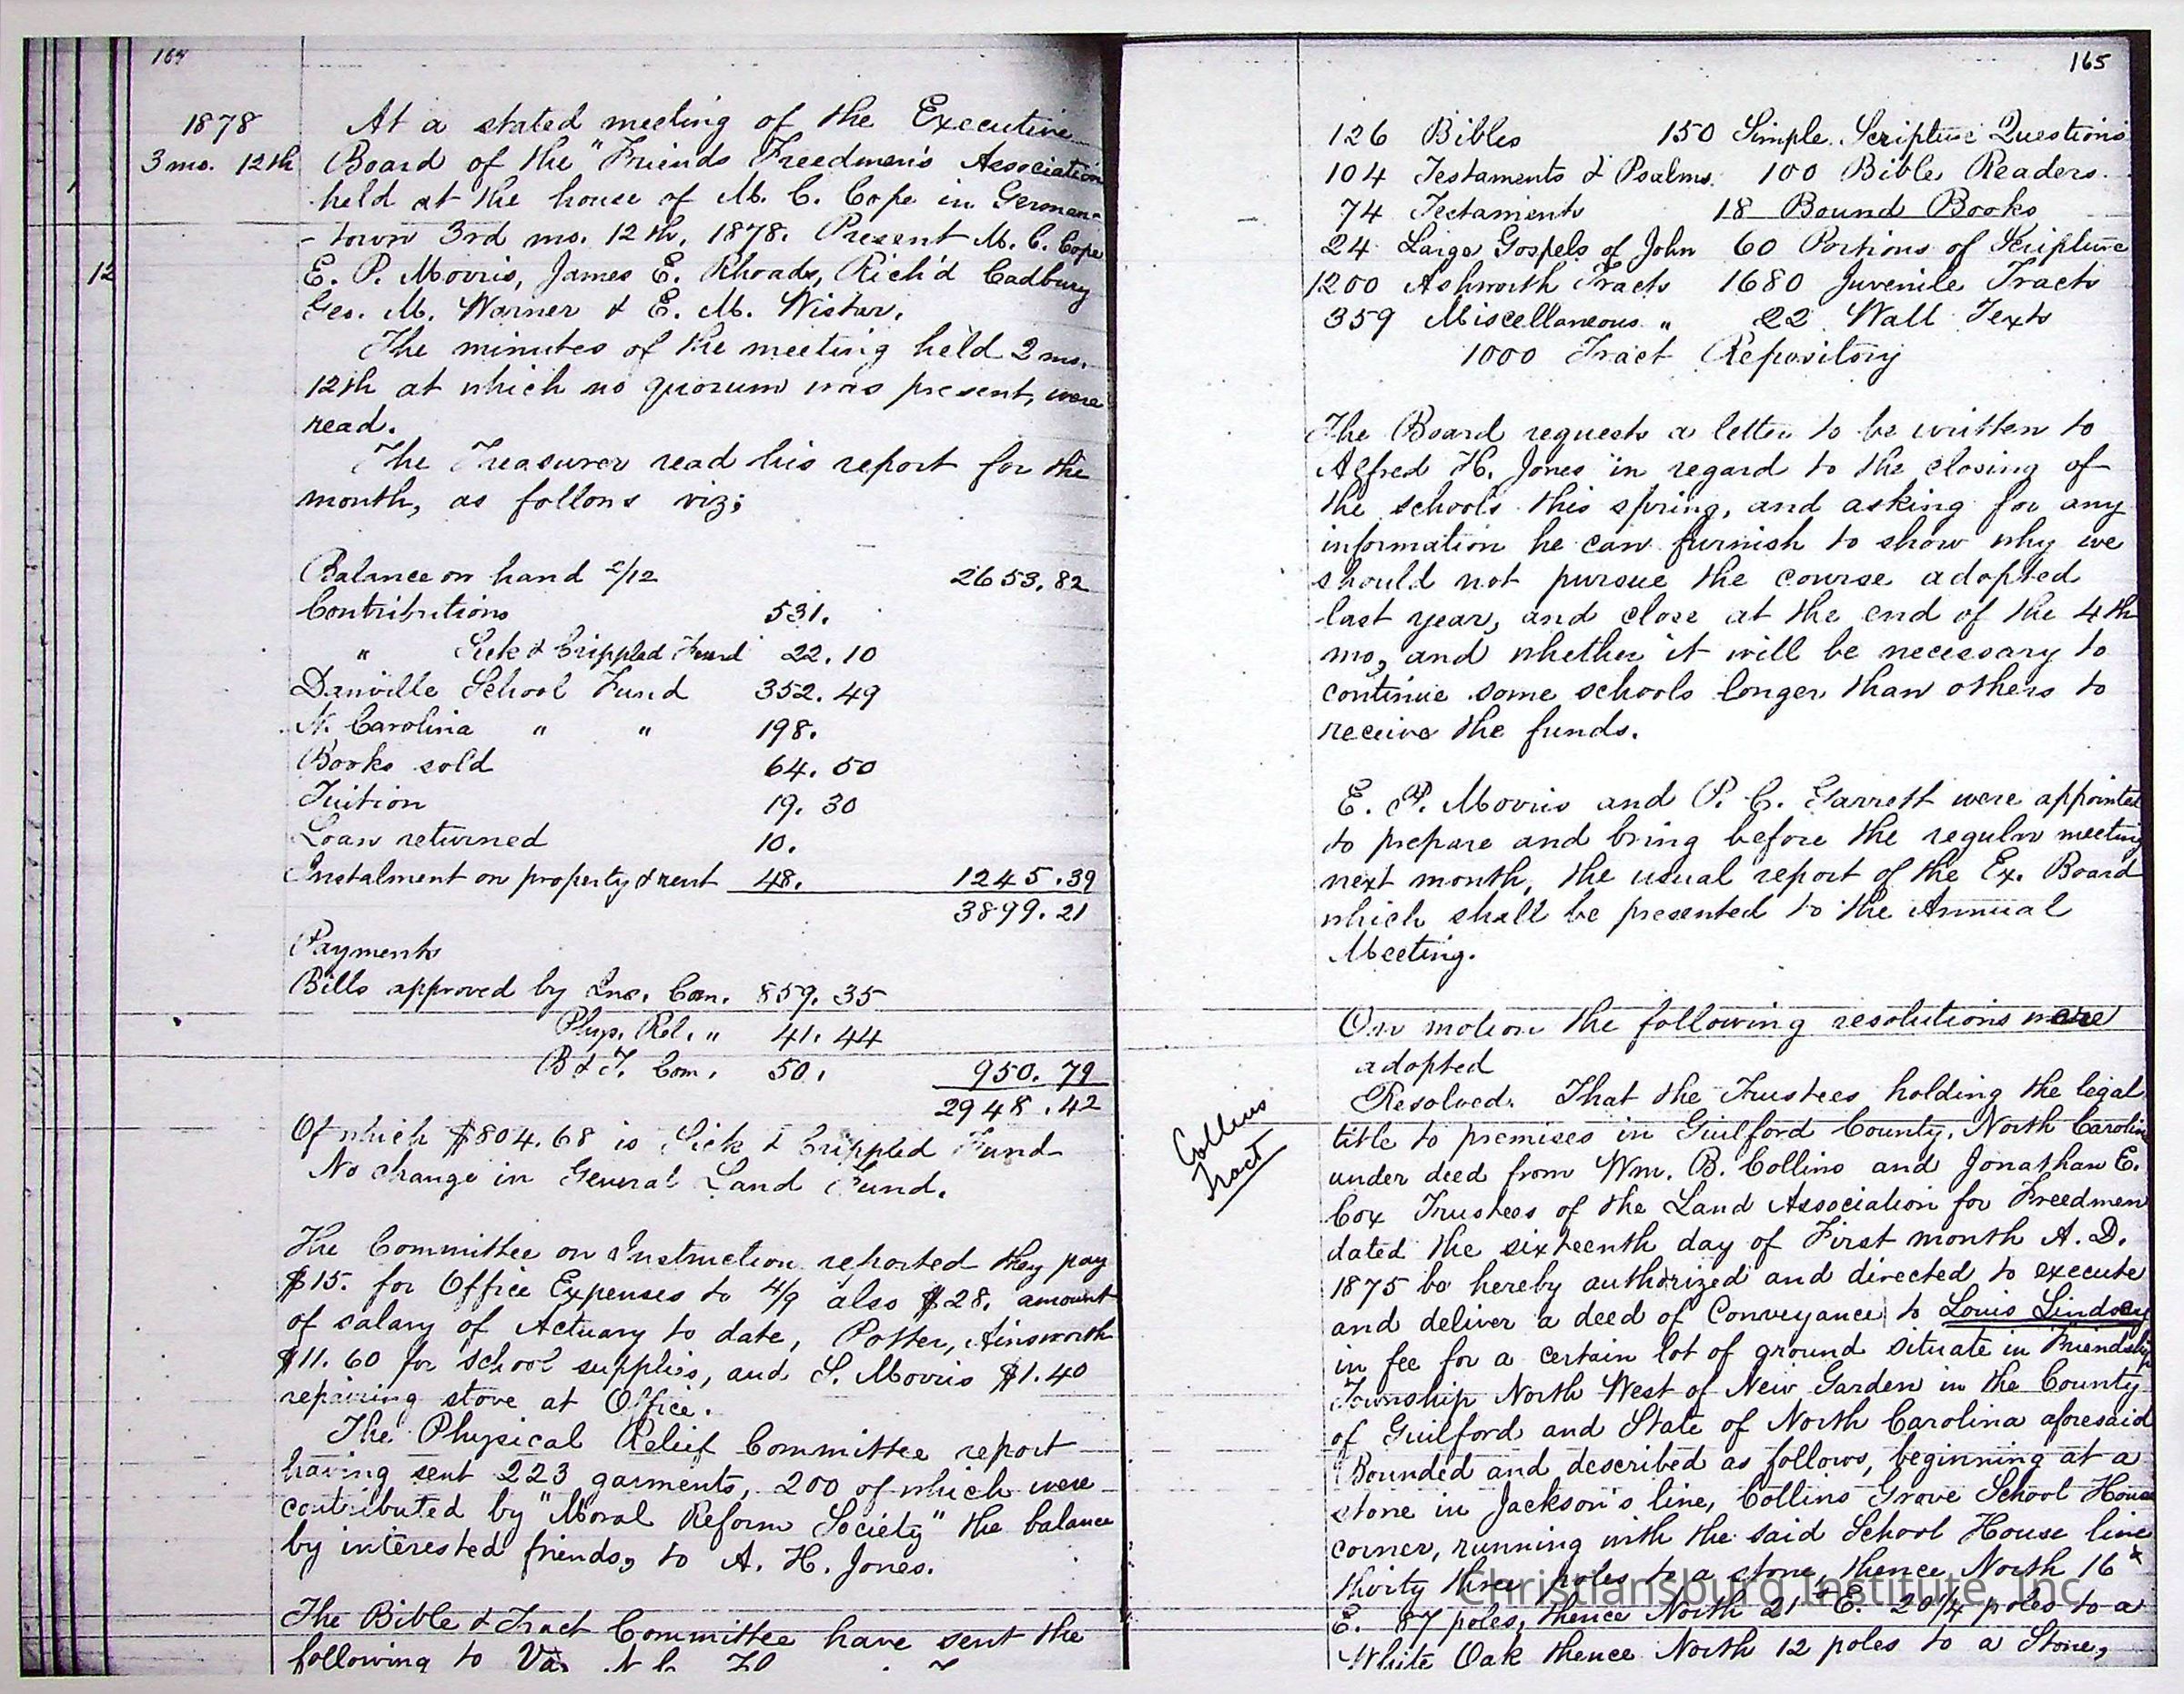 164
1878
3 mo. 12th
12
At a stated meeting of the Executive
Board of the "Friends Freedmen's Association
held at the house of M. C. Cope in German-
-town 3rd mo. 12th, 1878. Present M. C. Cope
E. P. Morris, James E. Rhoads, Rich'd Cadbury
Geo. M. Warner & E. M. Wistar.
The minutes of the meeting held 2 mo.
12th at which no quorum was present, were
read.
The Treasurer read his report for the
month, as follows viz;
Balance on hand 2/12 2653.82
Contributions 531.
" Sick & Crippled Fund 22.10
Danville School Fund 352.49
N. Carolina " " 198.
Books sold 64.50
Tuition 19.30
Loan returned 10.
Instalment on property & rent 48. 1245.39
3899.21
Payments
Bills approved by Ins. Com. 859.35
Phys. Rel. " 41.44
B & T. Com. 50. 950.79
2948.42
Of which $804.68 is Sick & Crippled Fund
No change in General Land Fund.
The Committee on Instruction reported they pay
$15. for Office Expenses to 4/9 also $28. amount
of salary of Actuary to date, Potter, Ainsworth
$11.60 for school supplies, and S. Morris $1.40
repairing stove at Office.
The Physical Relief Committee report
having sent 223 garments, 200 of which were
contributed by "Moral Reform Society" the balance
by interested friends, to A. H. Jones.
The Bible & Tract Committee have sent the
following to Va.
165
126 Bibles 150 Simple Scripture Questions
104 Testaments & Psalms. 100 Bible Readers.
74 Testaments 18 Bound Books
24 Large Gospels of John 60 Portions of Scripture
1200 Ashworth Tracts 1680 Juvenile Tracts
359 Miscellaneous " 22 Wall Texts
1000 Tract Repository
The Board requests a letter to be written to
Alfred H. Jones in regard to the closing of
the schools this spring, and asking for any
information he can furnish to show why we
should not pursue the course adopted
last year, and close at the end of the 4th
mo, and whether it will be necessary to
continue some schools longer than others to
receive the funds.
E. P. Morris and P. C. Garrett were appointed
to prepare and bring before the regular meeting
next month, the usual report of the Ex. Board
which shall be presented to the Annual
Meeting.
On motion the following resolutions were
adopted
Collins
Tract
Resolved. That the Trustees holding the legal
title to premises in Guilford County, North Carolina
under deed from Wm. B. Collins and Jonathan E.
Cox Trustees of the Land Association for Freedmen
dated the sixteenth day of First month A. D.
1875 be hereby authorized and directed to execute
and deliver a deed of Conveyance to Louis Lindsey
in fee for a certain lot of ground situate in Friendship
Township North West of New Garden in the County
of Guilford and State of North Carolina aforesaid
Bounded and described as follows, beginning at a
stone in Jackson's line, Collins Grove School House
corner, running with the said School House line
thirty three poles to a stone, thence North 16°
E. 87 poles, thence North 21° E. 20 1/4 poles to a
White Oak thence North 12 poles to a Stone,
Christiansburg Institute, Inc